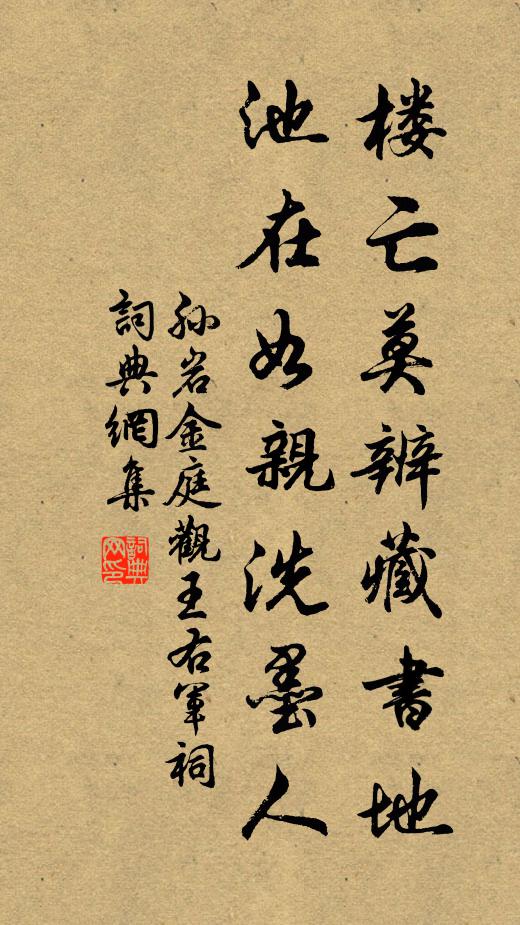 楼亡莫辨藏書地
池在如親洗墨人
孙岩金庭觀王右軍祠
詞典網集
詞典
网印